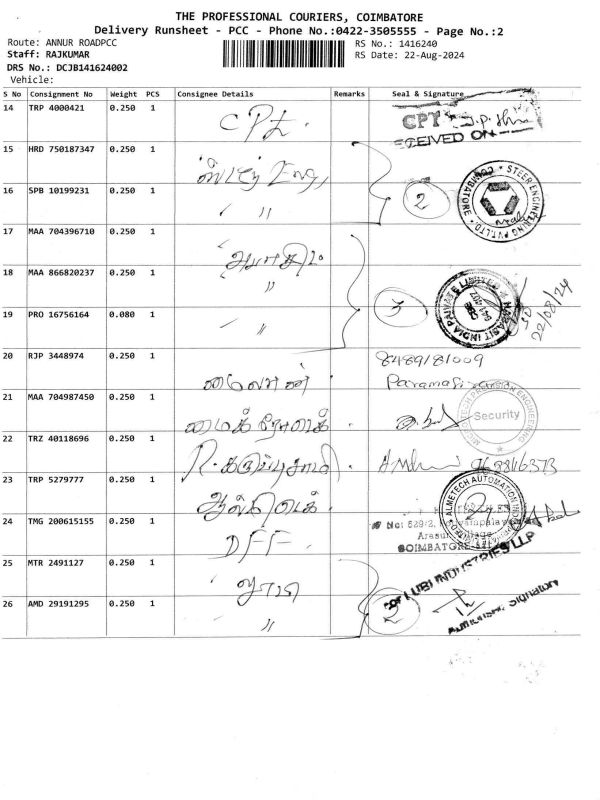 THE PROFESSIONAL COURIERS, COIMBATORE
Delivery Runsheet - PCC - Phone No.:0422-3505555 - Page No.:2
Route: ANNUR ROADPCC
RS No.: 1416240
Staff: RAJKUMAR
RS Date: 22-Aug-2024
DRS No.: DCJB141624002
Vehicle:
S No Consignment No Weight PCS Consignee Details Remarks Seal & Signature
14 TRP 4000421 0.250 1 CPT
RECEIVED ON
15 HRD 750187347 0.250 1 ஸ்டீர் Eng,
16 SPB 10199231 0.250 1 " 2
STEER ENGINEERING PVT.LTD. COIMBATORE
17 MAA 704396710 0.250 1
18 MAA 866820237 0.250 1 "
19 PRO 16756164 0.080 1 " 3
HABASIT INDIA PRIVATE LIMITED
CBE
22/08/24
20 RJP 3448974 0.250 1 8489181009
21 MAA 704987450 0.250 1 மைக் ரோமைக்
Security
22 TRZ 40118696 0.250 1 R. கருப்புசாமி
23 TRP 5279777 0.250 1
ALMETECH AUTOMATION
24 TMG 200615155 0.250 1 DFF
COIMBATORE
25 MTR 2491127 0.250 1 லூபி
For LUBI INDUSTRIES LLP
26 AMD 29191295 0.250 1 " 2